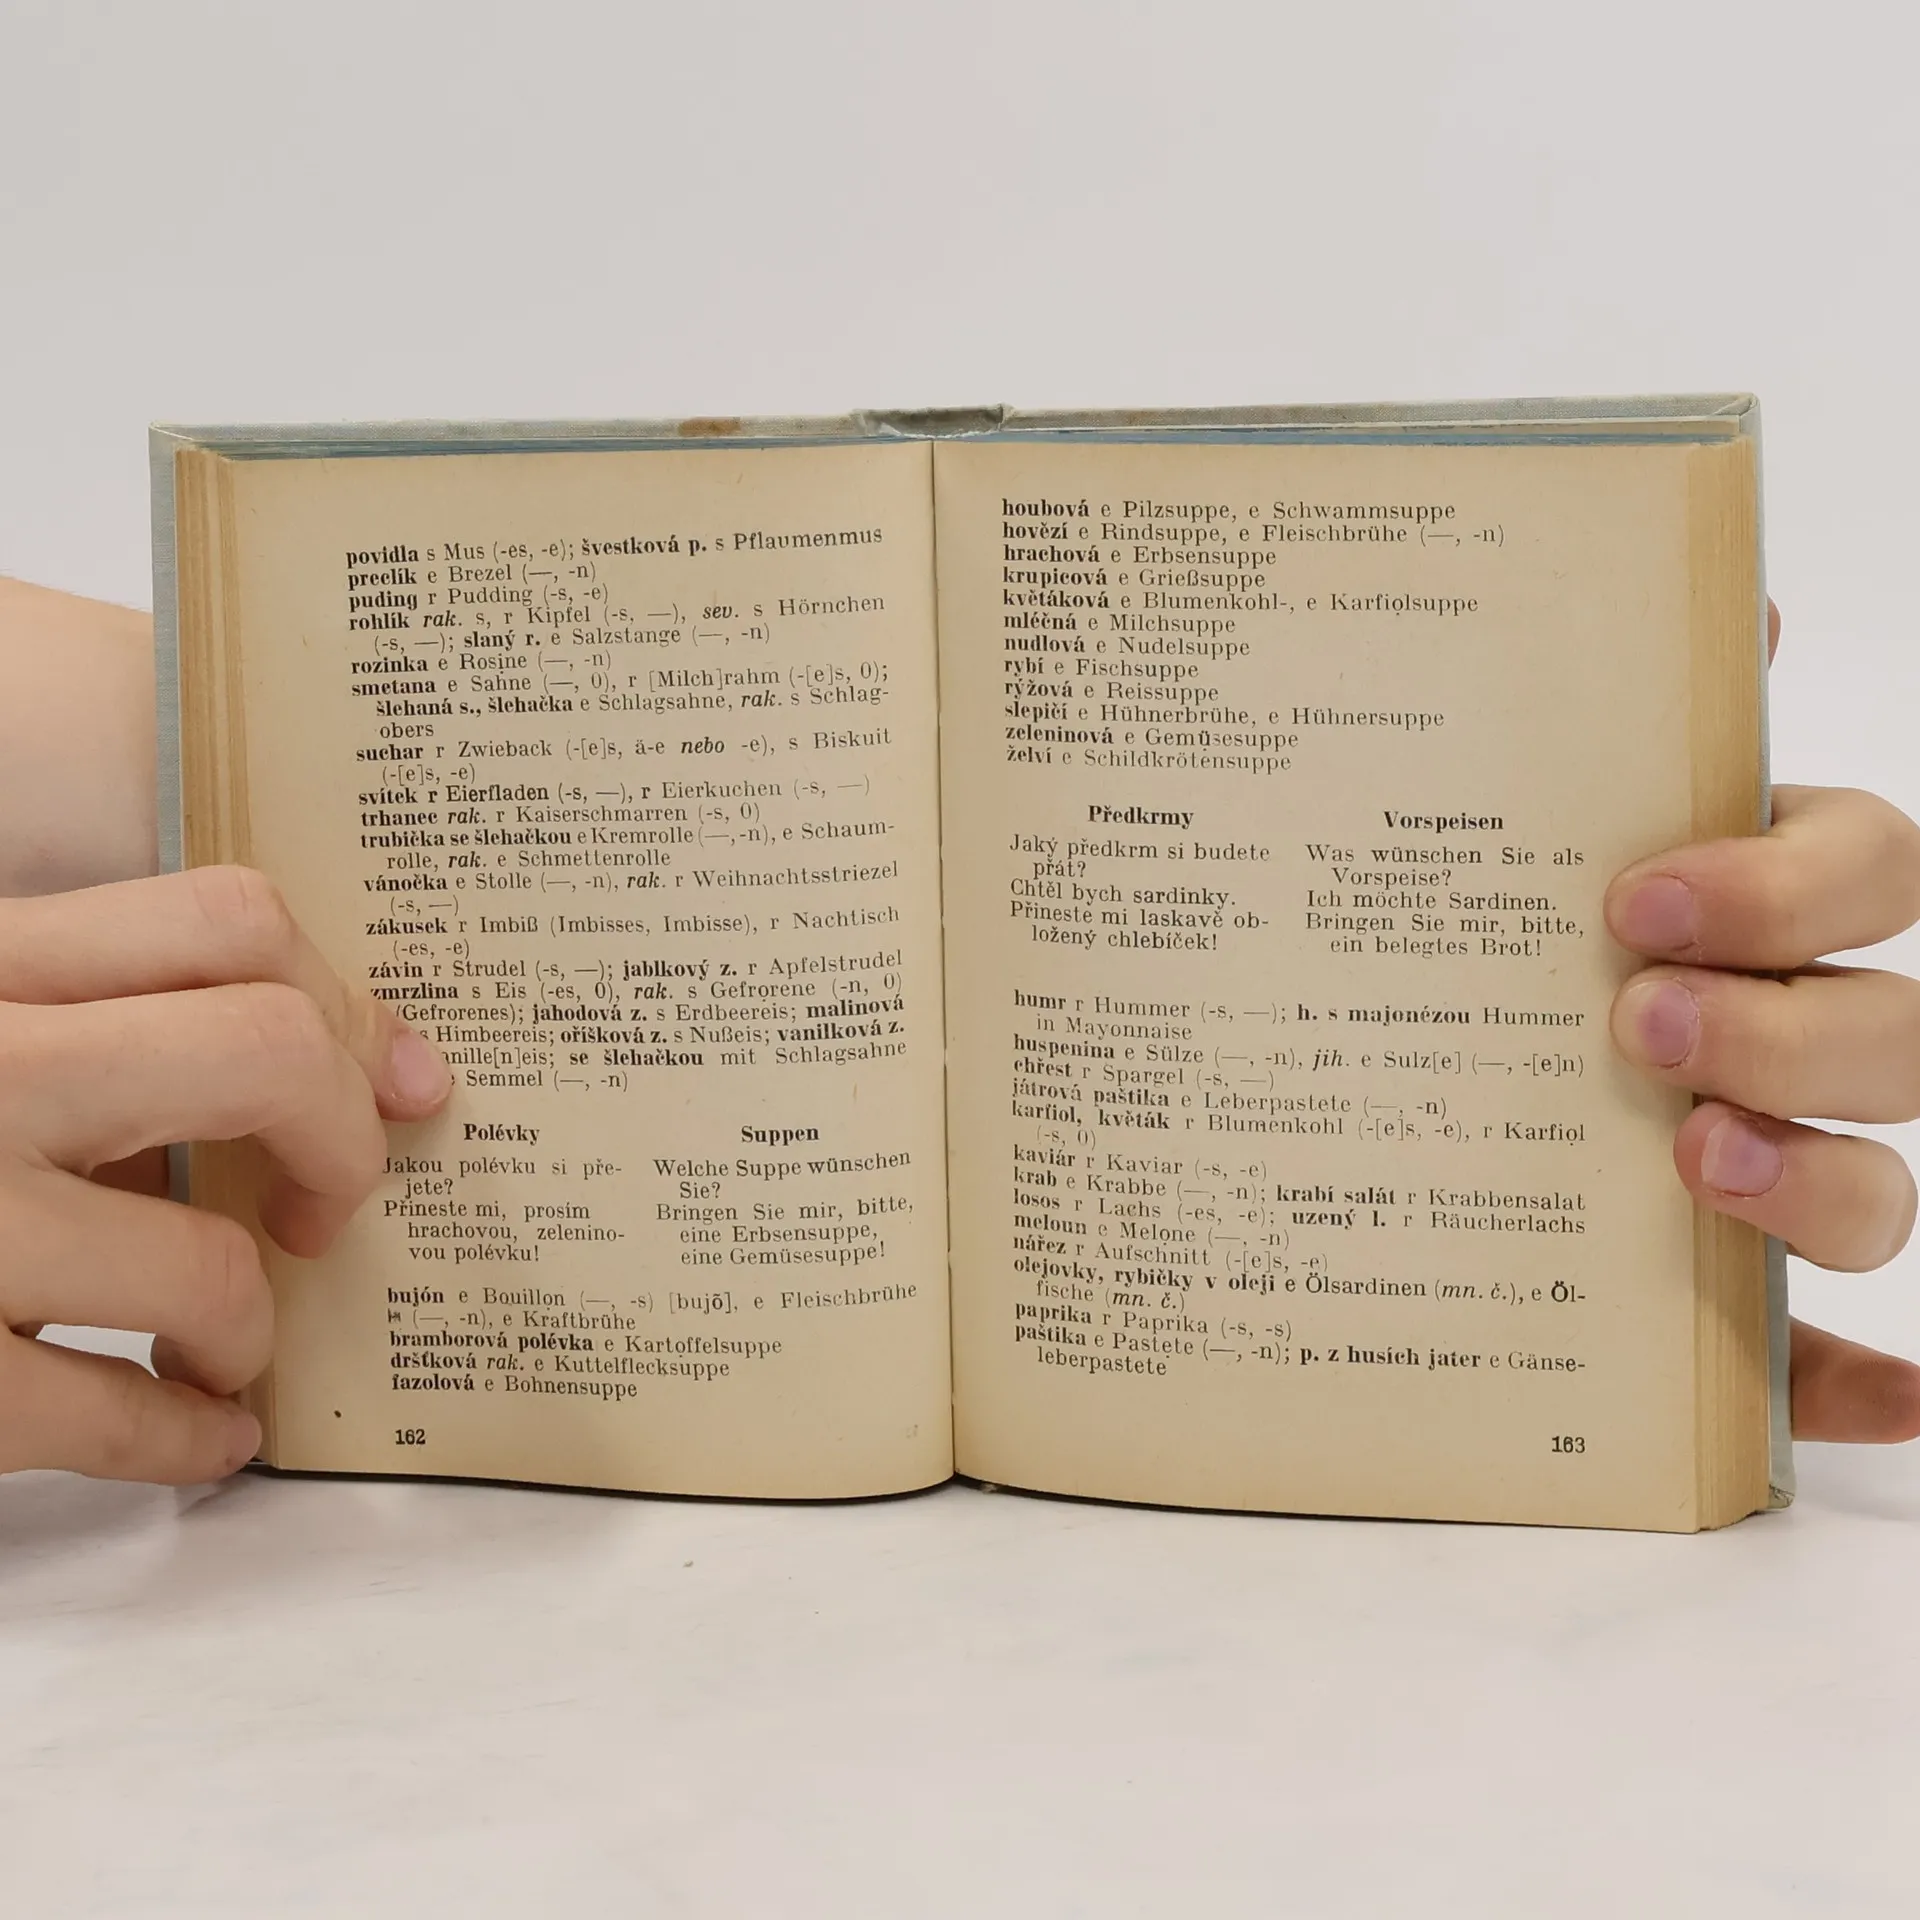 povidla s Mus (-es, -e); švestková p. s Pflaumenmus
preclík e Brezel (—, -n)
puding r Pudding (-s, -e)
rohlík rak. s, r Kipfel (-s, —), sev. s Hörnchen
(-s, —); slaný r. e Salzstange (—, -n)
rozinka e Rosine (—, -n)
smetana e Sahne (—, 0), r [Milch]rahm (-[e]s, 0);
šlehaná s., šlehačka e Schlagsahne, rak. s Schlag-
obers
suchar r Zwieback (-[e]s, ä-e nebo -e), s Biskuit
(-[e]s, -e)
svítek r Eierfladen (-s, —), r Eierkuchen (-s, —)
trhanec rak. r Kaiserschmarren (-s, 0)
trubička se šlehačkou e Kremrolle (—, -n), e Schaum-
rolle, rak. e Schmettenrolle
vánočka e Stolle (—, -n), rak. r Weihnachtsstriezel
(-s, —)
zákusek r Imbiß (Imbisses, Imbisse), r Nachtisch
(-es, -e)
závin r Strudel (-s, —); jablkový z. r Apfelstrudel
zmrzlina s Eis (-es, 0), rak. s Gefrorene (-n, 0)
(Gefrorenes); jahodová z. s Erdbeereis; malinová
s Himbeereis; oříšková z. s Nußeis; vanilková z.
anille[n]eis; se šlehačkou mit Schlagsahne
e Semmel (—, -n)
Polévky Suppen
Jakou polévku si pře- Welche Suppe wünschen
jete? Sie?
Přineste mi, prosím Bringen Sie mir, bitte,
hrachovou, zelenino- eine Erbsensuppe,
vou polévku! eine Gemüsesuppe!
bujón e Bouillon (—, -s) [bujõ], e Fleischbrühe
(—, -n), e Kraftbrühe
bramborová polévka e Kartoffelsuppe
dršťková rak. e Kuttelflecksuppe
fazolová e Bohnensuppe
162
houbová e Pilzsuppe, e Schwammsuppe
hovězí e Rindsuppe, e Fleischbrühe (—, -n)
hrachová e Erbsensuppe
krupicová e Grießsuppe
květáková e Blumenkohl-, e Karfiolsuppe
mléčná e Milchsuppe
nudlová e Nudelsuppe
rybí e Fischsuppe
rýžová e Reissuppe
slepičí e Hühnerbrühe, e Hühnersuppe
zeleninová e Gemüsesuppe
želví e Schildkrötensuppe
Předkrmy Vorspeisen
Jaký předkrm si budete Was wünschen Sie als
přát? Vorspeise?
Chtěl bych sardinky. Ich möchte Sardinen.
Přineste mi laskavě ob- Bringen Sie mir, bitte,
ložený chlebíček! ein belegtes Brot!
humr r Hummer (-s, —); h. s majonézou Hummer
in Mayonnaise
huspenina e Sülze (—, -n), jih. e Sulz[e] (—, -[e]n)
chřest r Spargel (-s, —)
játrová paštika e Leberpastete (—, -n)
karfiol, květák r Blumenkohl (-[e]s, -e), r Karfiol
(-s, 0)
kaviár r Kaviar (-s, -e)
krab e Krabbe (—, -n); krabí salát r Krabbensalat
losos r Lachs (-es, -e); uzený l. r Räucherlachs
meloun e Melone (—, -n)
nářez r Aufschnitt (-[e]s, -e)
olejovky, rybičky v oleji e Ölsardinen (mn. č.), e Öl-
fische (mn. č.)
paprika r Paprika (-s, -s)
paštika e Pastete (—, -n); p. z husích jater e Gänse-
leberpastete
163